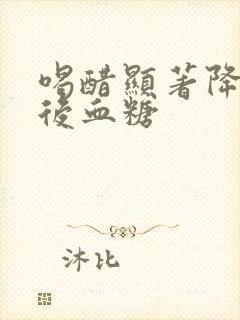 喝醋顯著降
後血糖
沐比